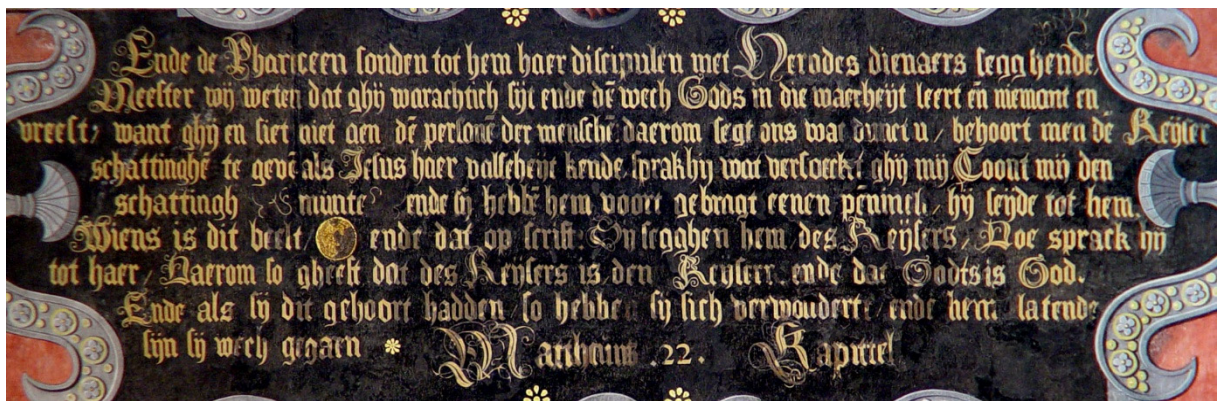 Ende de Phariceen sonden tot hem haer discipulen met Herodes dienaers segghende,
Meester wij weten dat ghij warachtich sijt ende dē wech Gods in die waerheijt leert eñ niemant en
vreest, want ghij en siet niet aen dē personē der menschē, daerom segt ons wat dunct u, behoort men dē Keijser
schattinghē te gevē als Jesus haer valscheijt kende, sprak hij wat versoeckt ghij mij Toont mij den
schattingh munte ende sij hebbē hem voort gebragt eenen pēninck, hij seyde tot hem,
Wiens is dit beelt, ende dat op scrift. Sij segghen hem des Keijsers, Doe sprack hij
tot haer, Daerom so gheeft dat des Keijsers is den Keijser, ende dat Godts is God.
Ende als sij dit gehoort hadden, so hebben sij sich verwondert, ende hem latende
sijn sij wech gegaen Mattheus .22. Kapittel